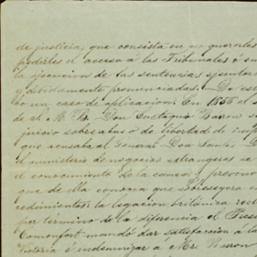 de justicia, que consista en no querer les
poderles el acceso a los Tribunales ó en
la ejecucion de las sentencias ejecutor
y debidamente pronunciadas. De est
un caso de aplicacion. En 1855 el
de S. M. B. Don Eustaquio Baron
juicio sobre abuso de libertad de imp
que acusaba al General Don Santos
el ministerio de negocios extrangeros
el conocimiento de la causa y
que de ella conocia que sobreseyera
cedimientos la legacion británica
por termino de la diferencia el Pres
Comonfort mandó dar satisfaccion a la
Victoria é indemnizar a Mr. Baron